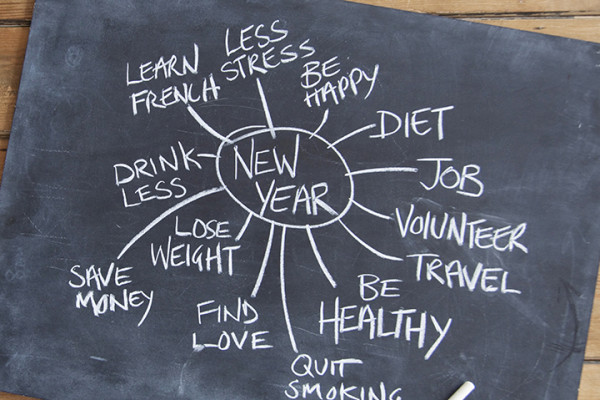 LESS
STRESS
LEARN
FRENCH
BE
HAPPY
DIET
DRINK
LESS
NEW
YEAR
JOB
VOLUNTEER
LOSE
WEIGHT
TRAVEL
SAVE
MONEY
BE
HEALTHY
FIND
LOVE
QUIT
SMOKING